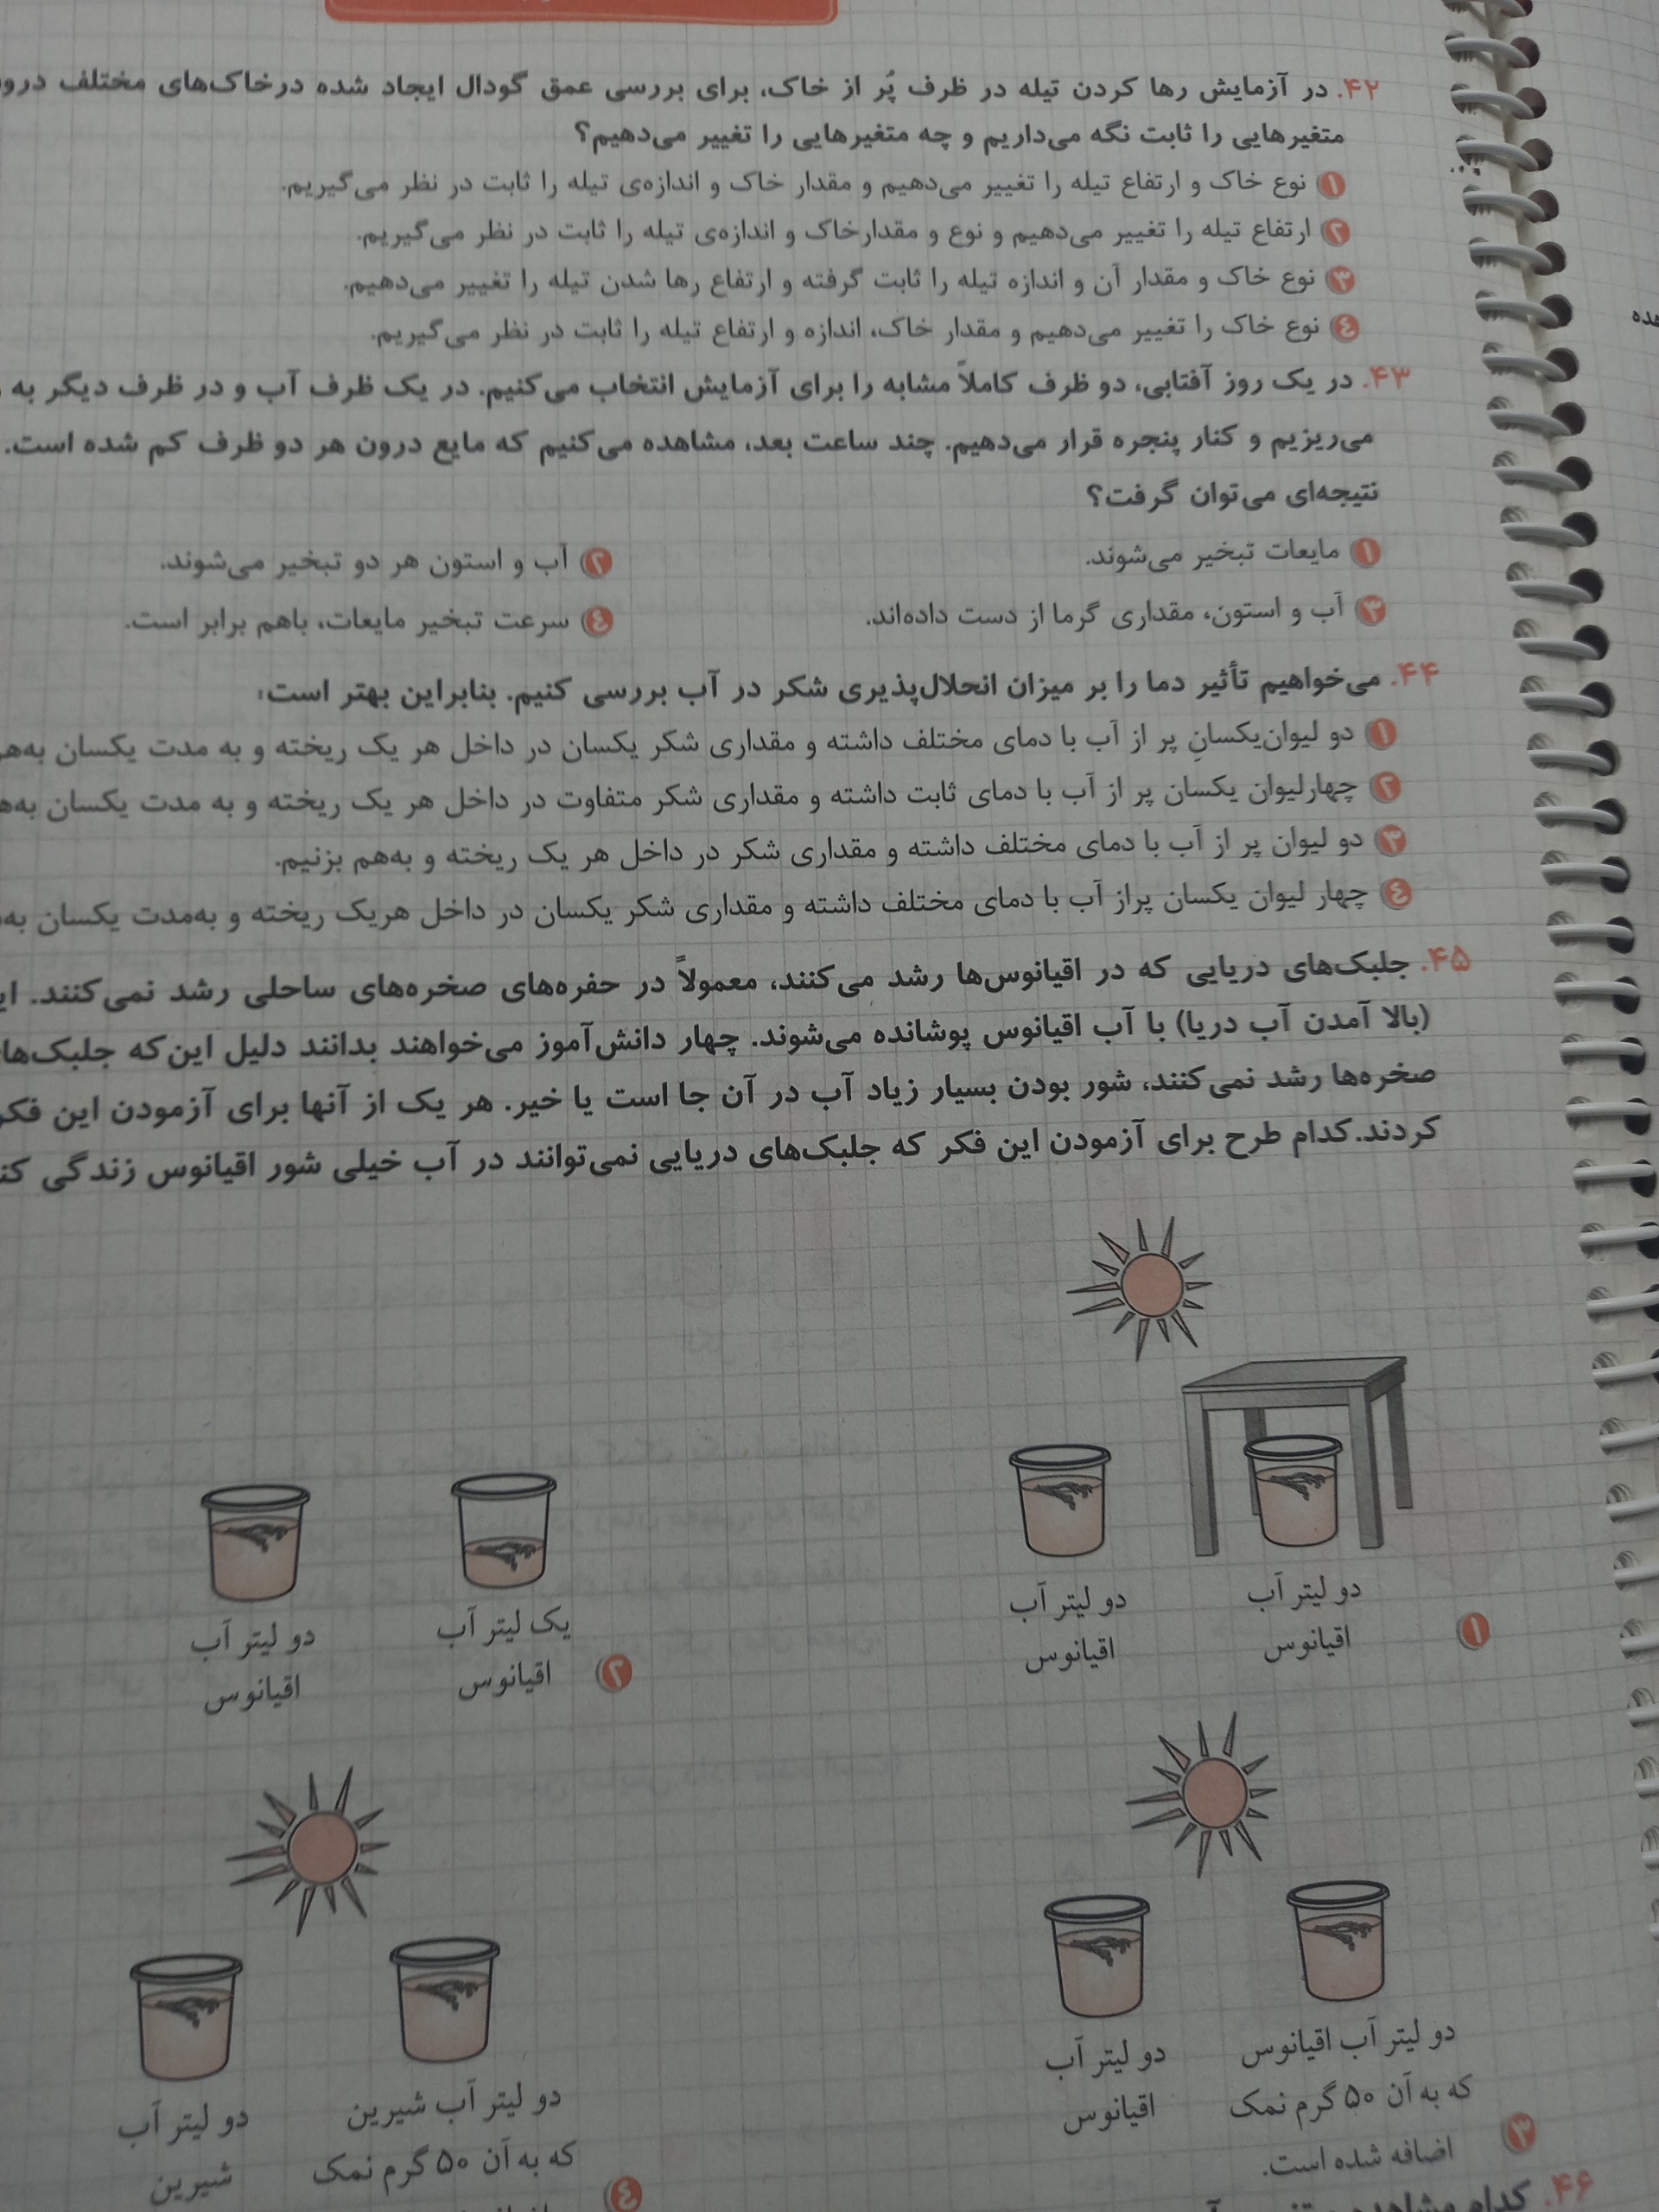 ۴۲. در آزمایش رها کردن تیله در ظرف پُر از خاک، برای بررسی عمق گودال ایجاد شده درخاک‌های مختلف
متغیرهایی را ثابت نگه می‌داریم و چه متغیرهایی را تغییر می‌دهیم؟
۱ نوع خاک و ارتفاع تیله را تغییر می‌دهیم و مقدار خاک و اندازه‌ی تیله را ثابت در نظر می‌گیریم.
۲ ارتفاع تیله را تغییر می‌دهیم و نوع و مقدارخاک و اندازه‌ی تیله را ثابت در نظر می‌گیریم.
۳ نوع خاک و مقدار آن و اندازه تیله را ثابت گرفته و ارتفاع رها شدن تیله را تغییر می‌دهیم.
۴ نوع خاک را تغییر می‌دهیم و مقدار خاک، اندازه و ارتفاع تیله را ثابت در نظر می‌گیریم.
۴۳. در یک روز آفتابی، دو ظرف کاملاً مشابه را برای آزمایش انتخاب می‌کنیم. در یک ظرف آب و در ظرف دیگر به
می‌ریزیم و کنار پنجره قرار می‌دهیم. چند ساعت بعد، مشاهده می‌کنیم که مایع درون هر دو ظرف کم شده است.
نتیجه‌ای می‌توان گرفت؟
۱ مایعات تبخیر می‌شوند.
۲ آب و استون هر دو تبخیر می‌شوند.
۳ آب و استون، مقداری گرما از دست داده‌اند.
۴ سرعت تبخیر مایعات، باهم برابر است.
۴۴. می‌خواهیم تأثیر دما را بر میزان انحلال‌پذیری شکر در آب بررسی کنیم. بنابراین بهتر است:
۱ دو لیوان‌یکسانِ پر از آب با دمای مختلف داشته و مقداری شکر یکسان در داخل هر یک ریخته و به مدت یکسان
۲ چهارلیوان یکسان پر از آب با دمای ثابت داشته و مقداری شکر متفاوت در داخل هر یک ریخته و به مدت یکسان
۳ دو لیوان پر از آب با دمای مختلف داشته و مقداری شکر در داخل هر یک ریخته و به‌هم بزنیم.
۴ چهار لیوان یکسان پراز آب با دمای مختلف داشته و مقداری شکر یکسان در داخل هریک ریخته و به‌مدت یکسان
۴۵. جلبک‌های دریایی که در اقیانوس‌ها رشد می‌کنند، معمولاً در حفره‌های صخره‌های ساحلی رشد نمی‌کنند.
(بالا آمدن آب دریا) با آب اقیانوس پوشانده می‌شوند. چهار دانش‌آموز می‌خواهند بدانند دلیل این‌که
صخره‌ها رشد نمی‌کنند، شور بودن بسیار زیاد آب در آن جا است یا خیر. هر یک از آنها برای آزمودن این فکر
کردند.کدام طرح برای آزمودن این فکر که جلبک‌های دریایی نمی‌توانند در آب خیلی شور اقیانوس زندگی
۱
دو لیتر آب
اقیانوس
دو لیتر آب
اقیانوس
۲
یک لیتر آب
اقیانوس
دو لیتر آب
اقیانوس
۳
دو لیتر آب اقیانوس
که به آن ۵۰ گرم نمک
اضافه شده است.
دو لیتر آب
اقیانوس
۴
دو لیتر آب شیرین
که به آن ۵۰ گرم نمک
دو لیتر آب
شیرین
۴۶. کدام مشاهده